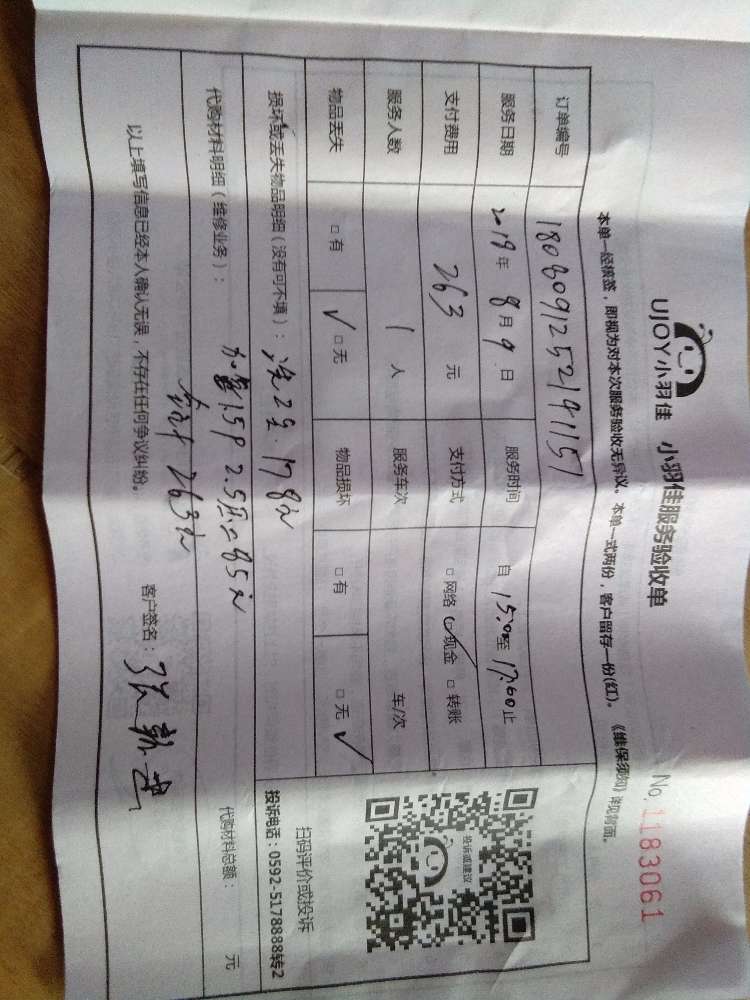 UJOY小羽佳 小羽佳服务验收单
No. 1183061
本单一经核签,即视为对本次服务验收无异议。本单一式两份,客户留存一份(红)。《维保须知》详见背面。
订单编号 1808091252191151
服务日期 2019年 8月 9日 服务时间 自 15:00至 17:00止
支付费用 263 元 支付方式 □网络 ☑现金 □转账
服务人数 1 人 服务车次 车/次
物品丢失 □有 ✓□无 物品损坏 □有 □无✓
扫码评价或投诉
投诉电话:0592-5178888转2
投诉或建议
损坏或丢失物品明细(没有可不填): 洗2台.178元
代购材料明细(维修业务): 1.5P 2.5 85元
代购材料总额: 元
263元
以上填写信息已经本人确认无误,不存在任何争议纠纷。
客户签名: